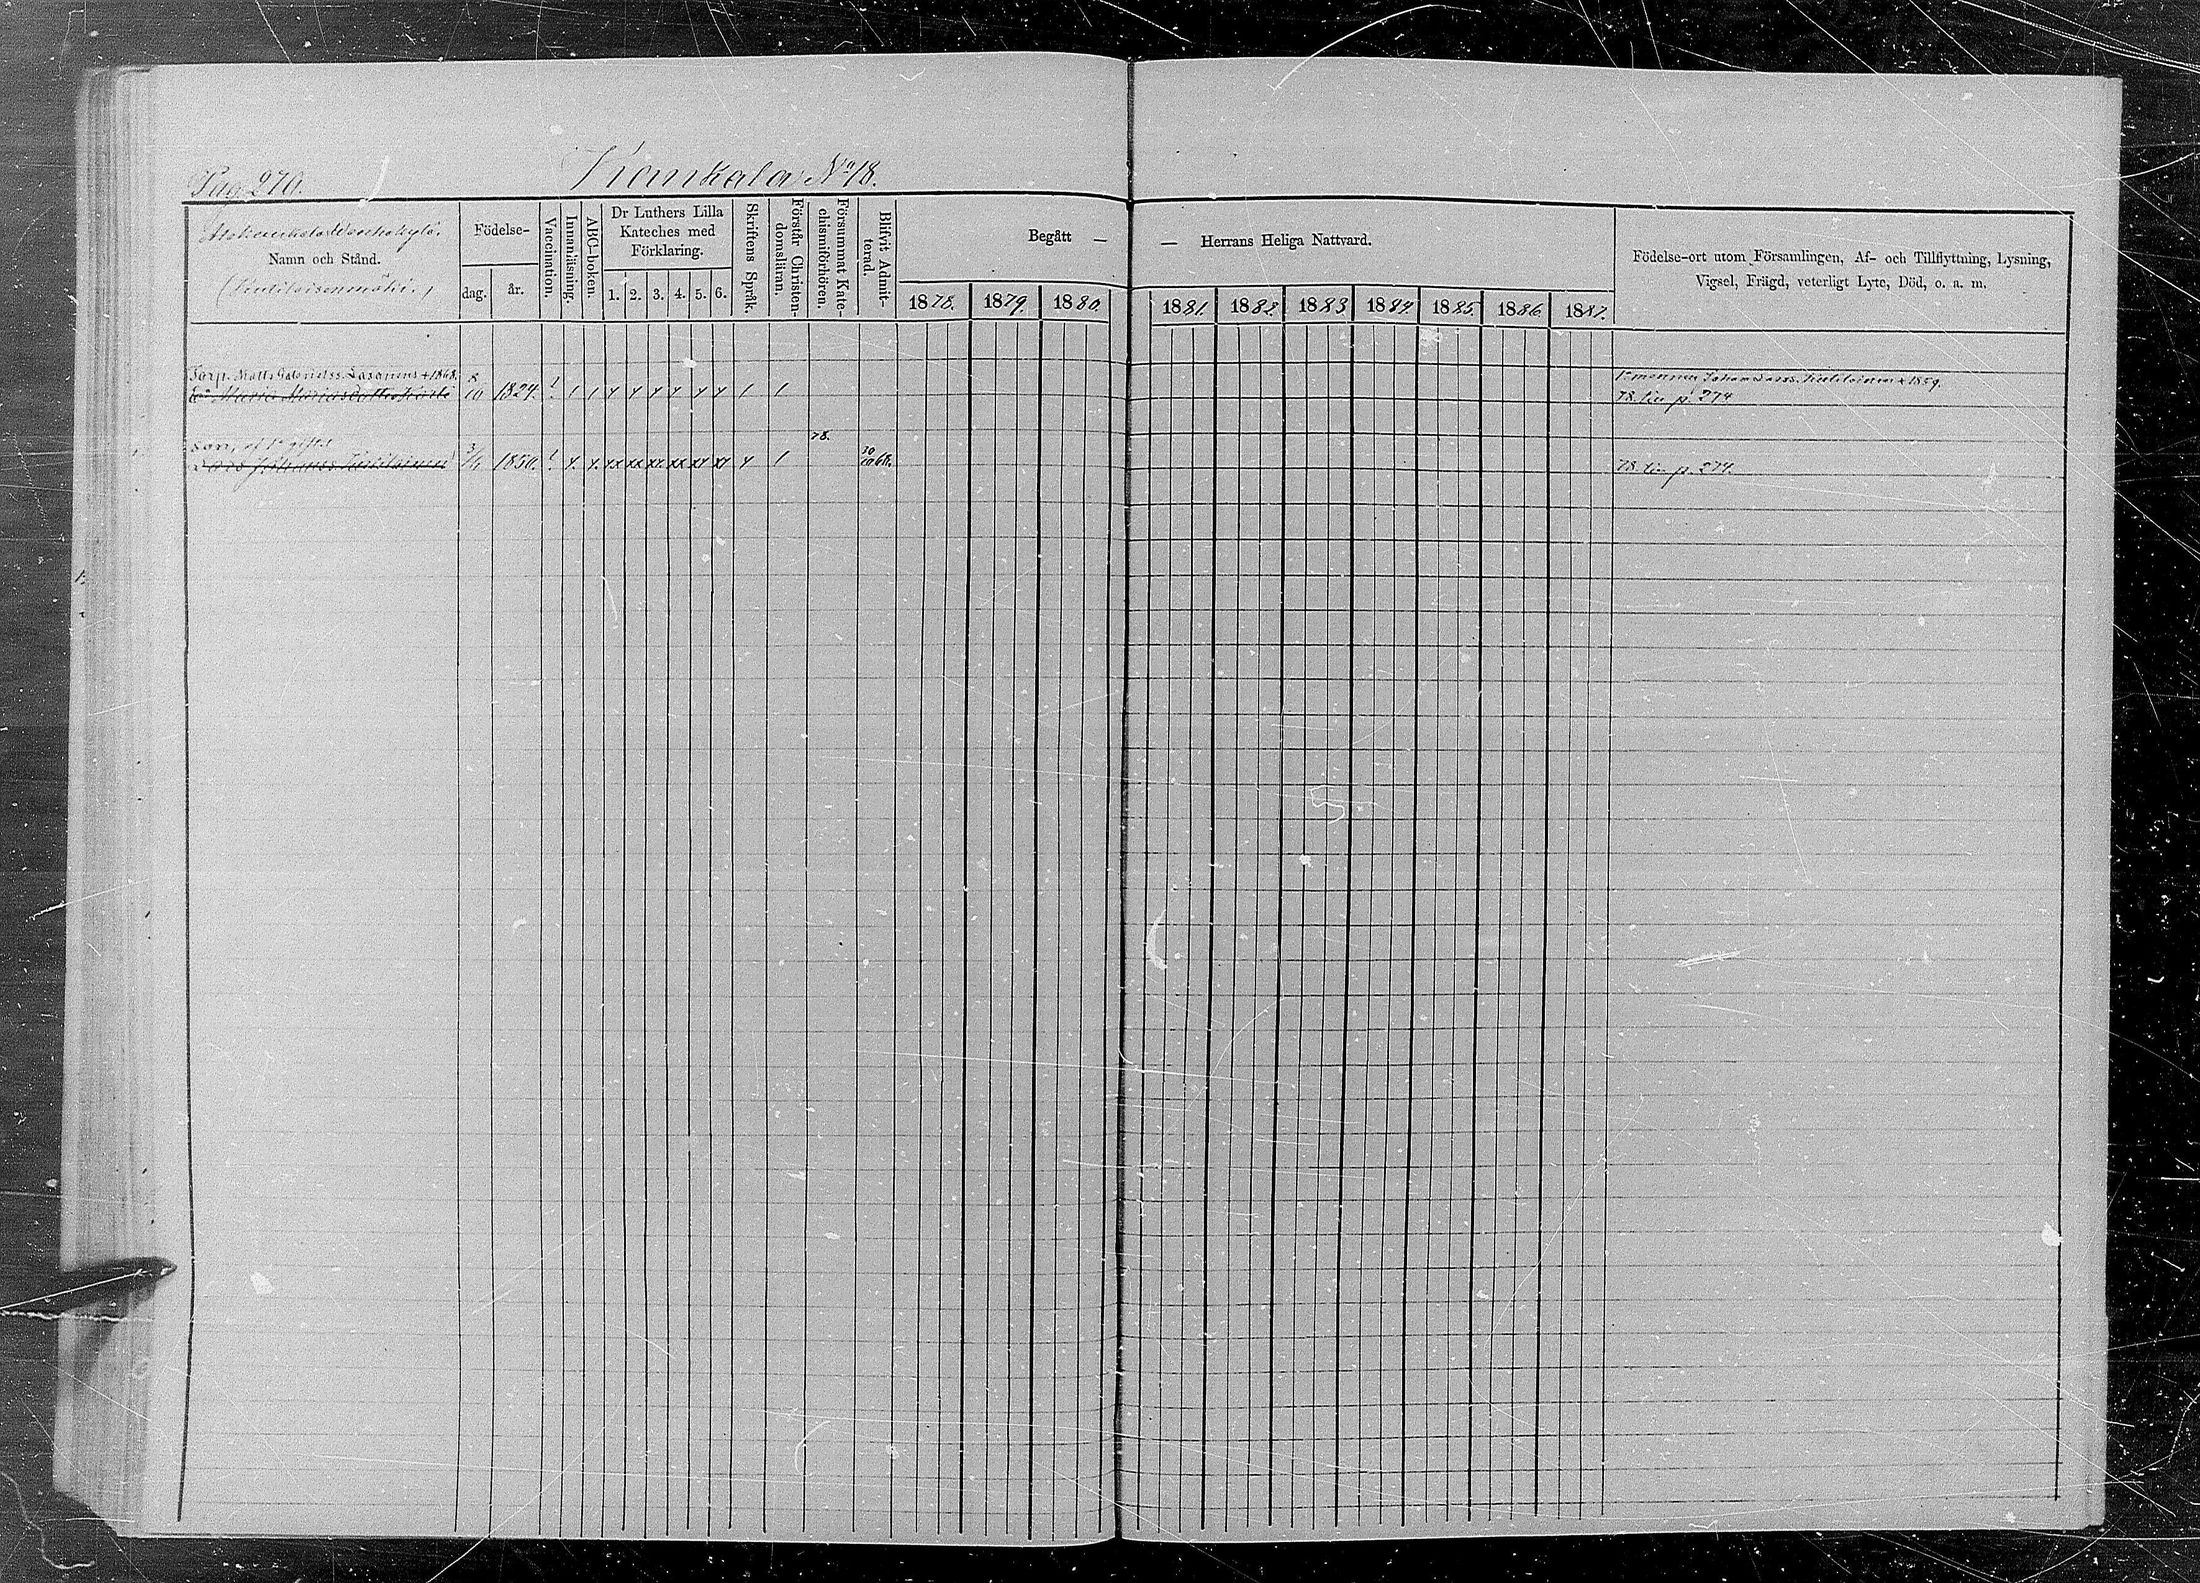 Pag 270.
Kankala No 18.
Namn och Stånd.
Födelse-
dag.
år.
Vaccination.
Innanläsning.
ABC-boken.
Dr Luthers Lilla
Kateches med
Förklaring.
1. 2. 3. 4. 5. 6.
Skriftens Språk.
Förstår Christen-
domsläran.
Försummat Kate-
chismiförhören.
Blifvit Admit-
terad.
Begått —
1878. 1879. 1880.
— Herrans Heliga Nattvard.
1881. 1882. 1883 1884. 1885. 1886 1887.
Födelse-ort utom Församlingen, Af- och Tillflyttning, Lysning,
Vigsel, Frägd, veterligt Lyte, Död, o. a. m.
Torp. Matts Gabrielss. Lasanens + 1868.
Maria 8/10 1824.
1859.
78. p. 274
son, af 1a giftet
Johanss. 3/4 1850. 78. 30/10 68.
78. p. 274.